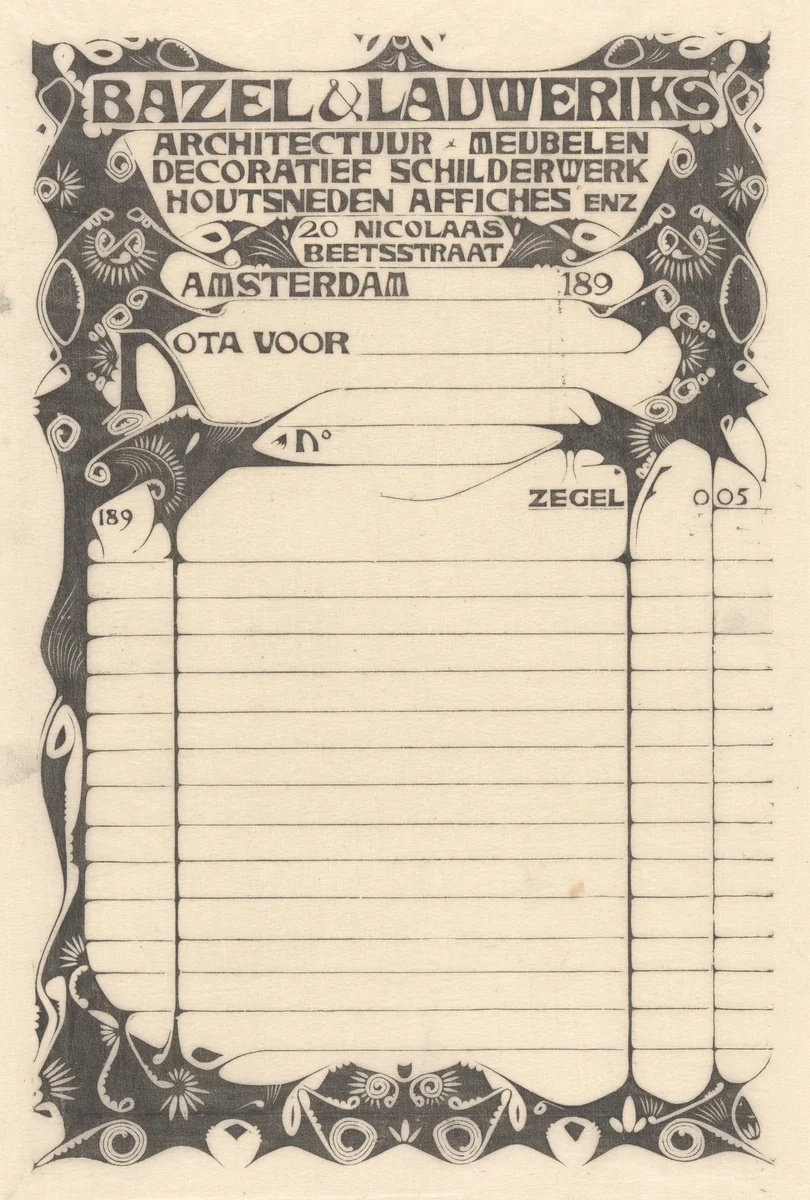 BAZEL & LAUWERIKS
ARCHITECTUUR × MEUBELEN
DECORATIEF SCHILDERWERK
HOUTSNEDEN AFFICHES ENZ
20 NICOLAAS
BEETSSTRAAT
AMSTERDAM 189
NOTA VOOR
No
ZEGEL 0 05
189